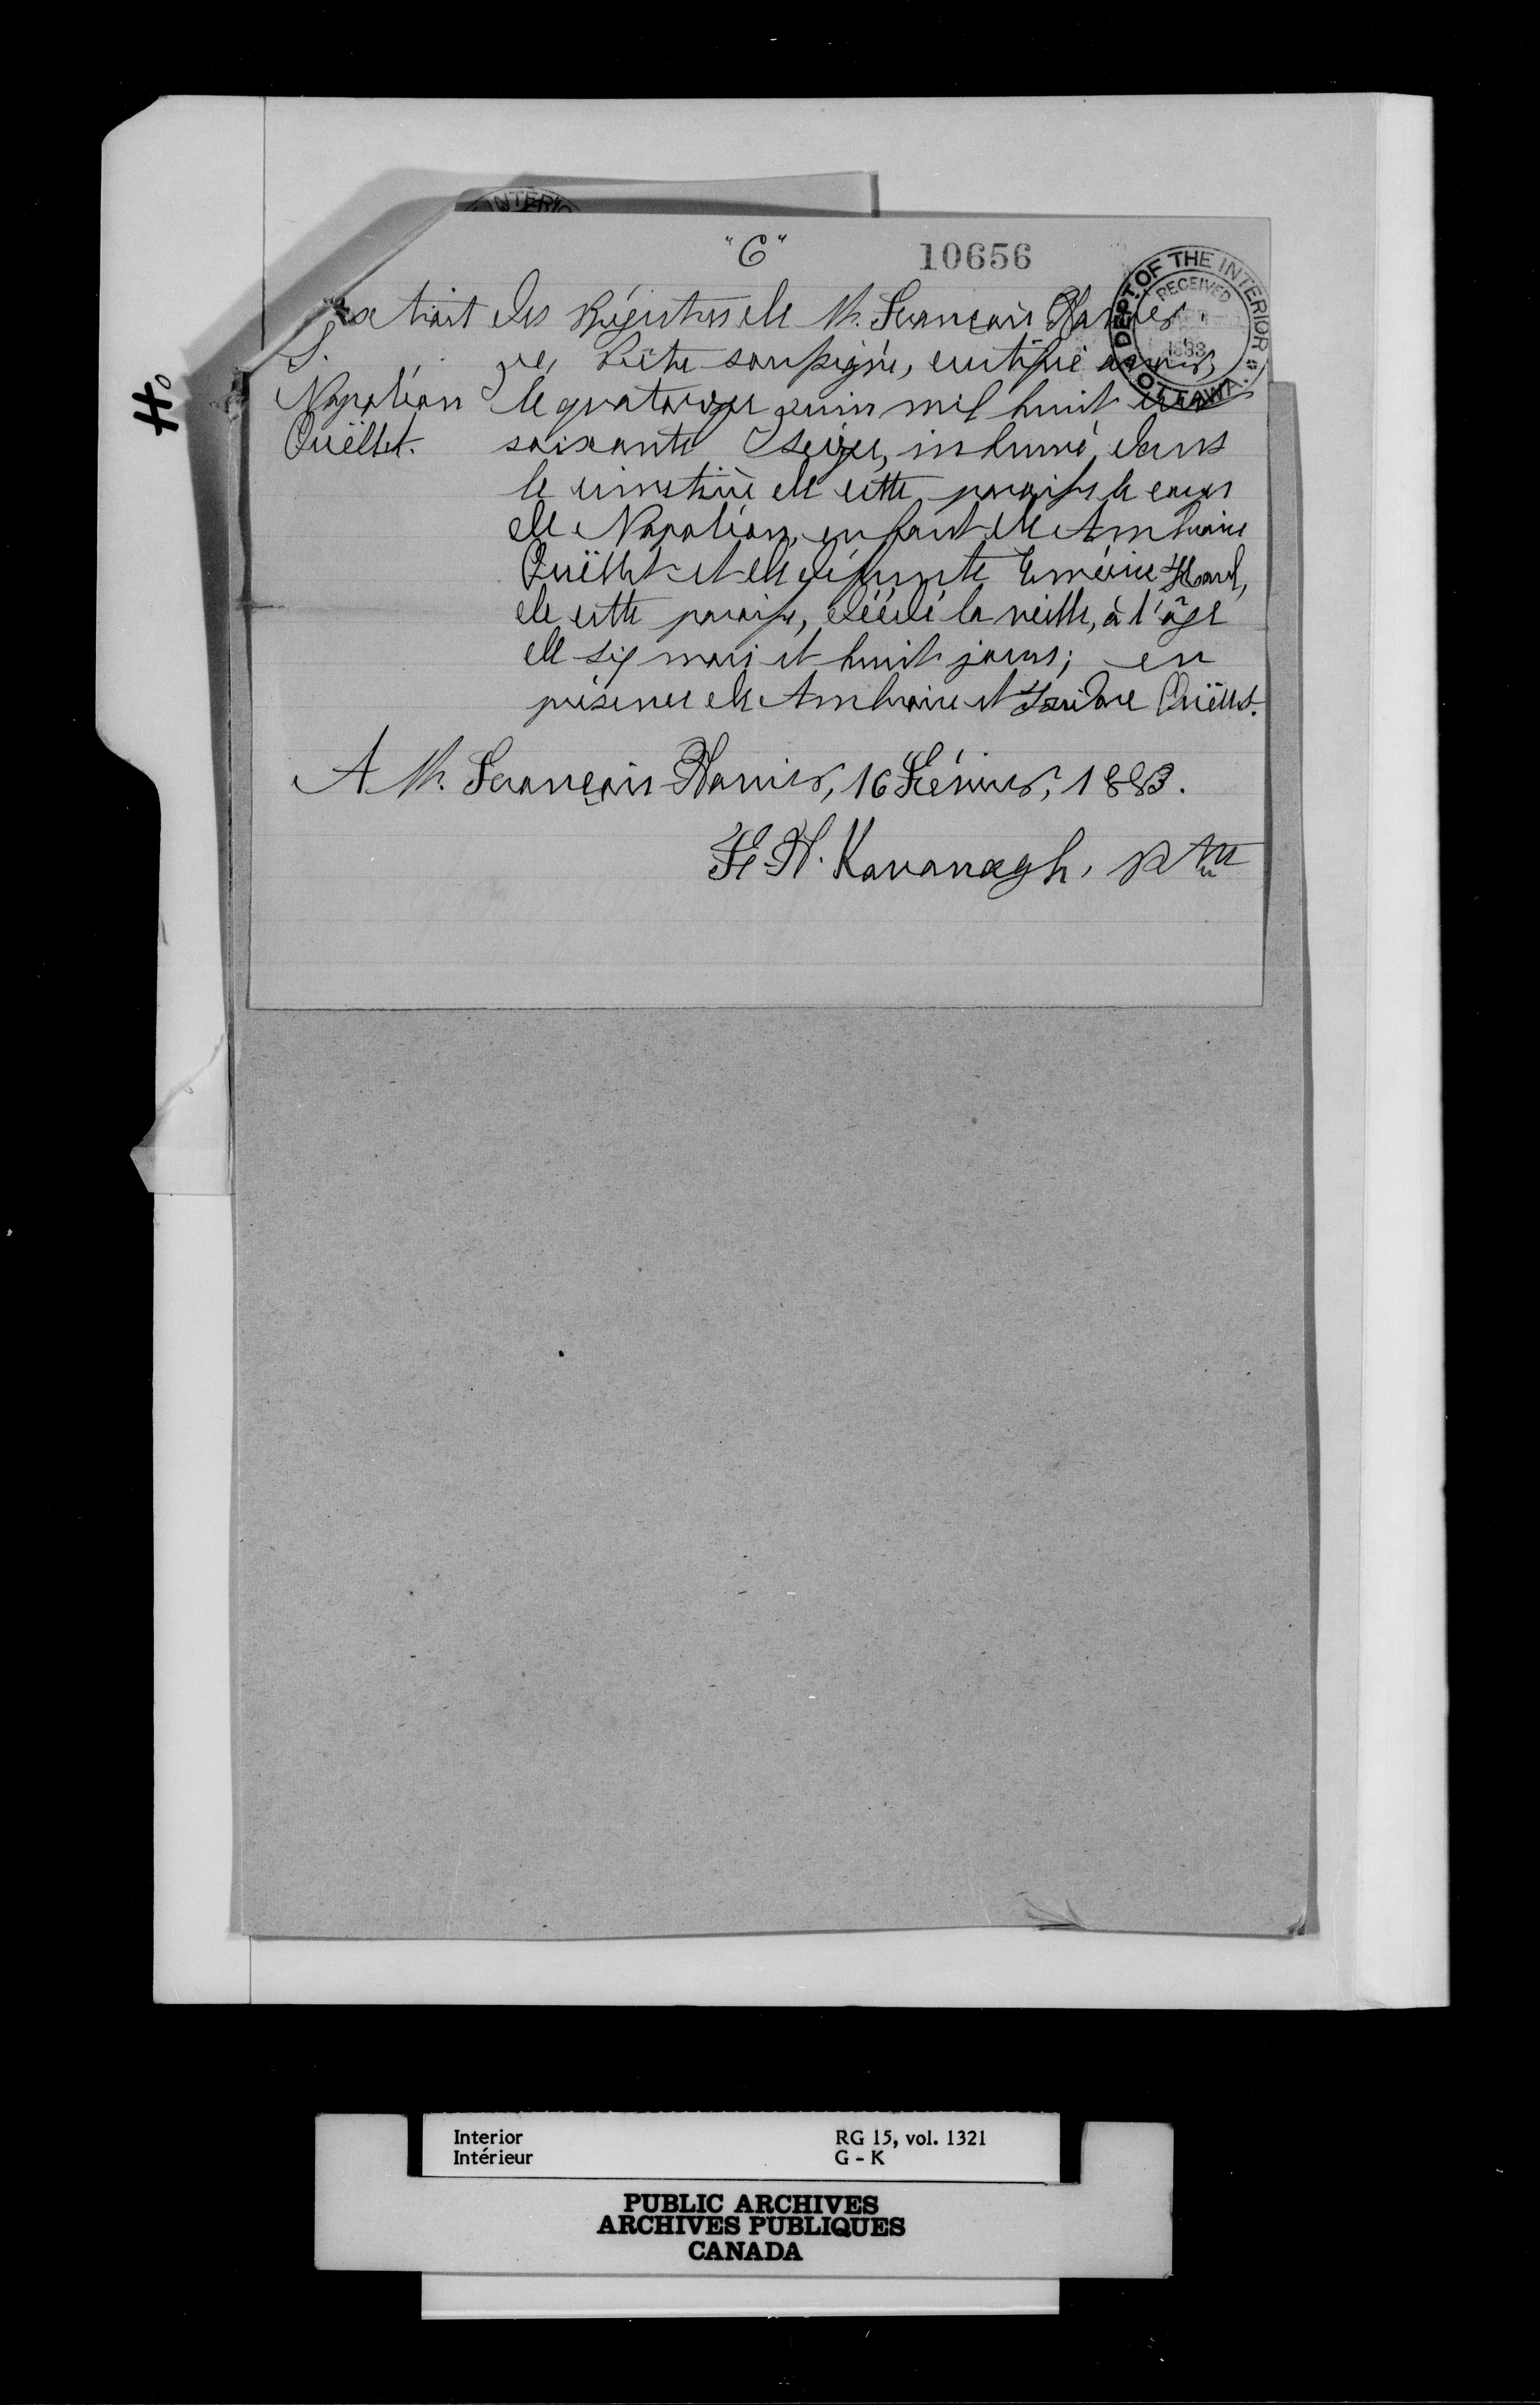 "C" 10656
DEPT OF THE INTERIOR
RECEIVED
1883
OTTAWA.
INTERIO
Extrait des Régistres de St. François Xavier.
S.
Napoléon
Ouëllet.
Je, Prêtre soussigné, certifie avoir,
le quatorze juin mil huit cent
soixante & seize, inhumé, dans
le cimetière de cette paroisse le corps
de Napoléon, enfant de Ambroise
Ouëllet et de défunte Emérise
de cette paroisse, décédé la veille, à l'âge
de six mois et huit jours; en
présence de Ambroise et Isidore Ouëllet.
A St. François Xavier, 16 Février, 1883.
F. X. Kavanagh, Ptre
H
Interior RG 15, vol. 1321
Intérieur G - K
PUBLIC ARCHIVES
ARCHIVES PUBLIQUES
CANADA